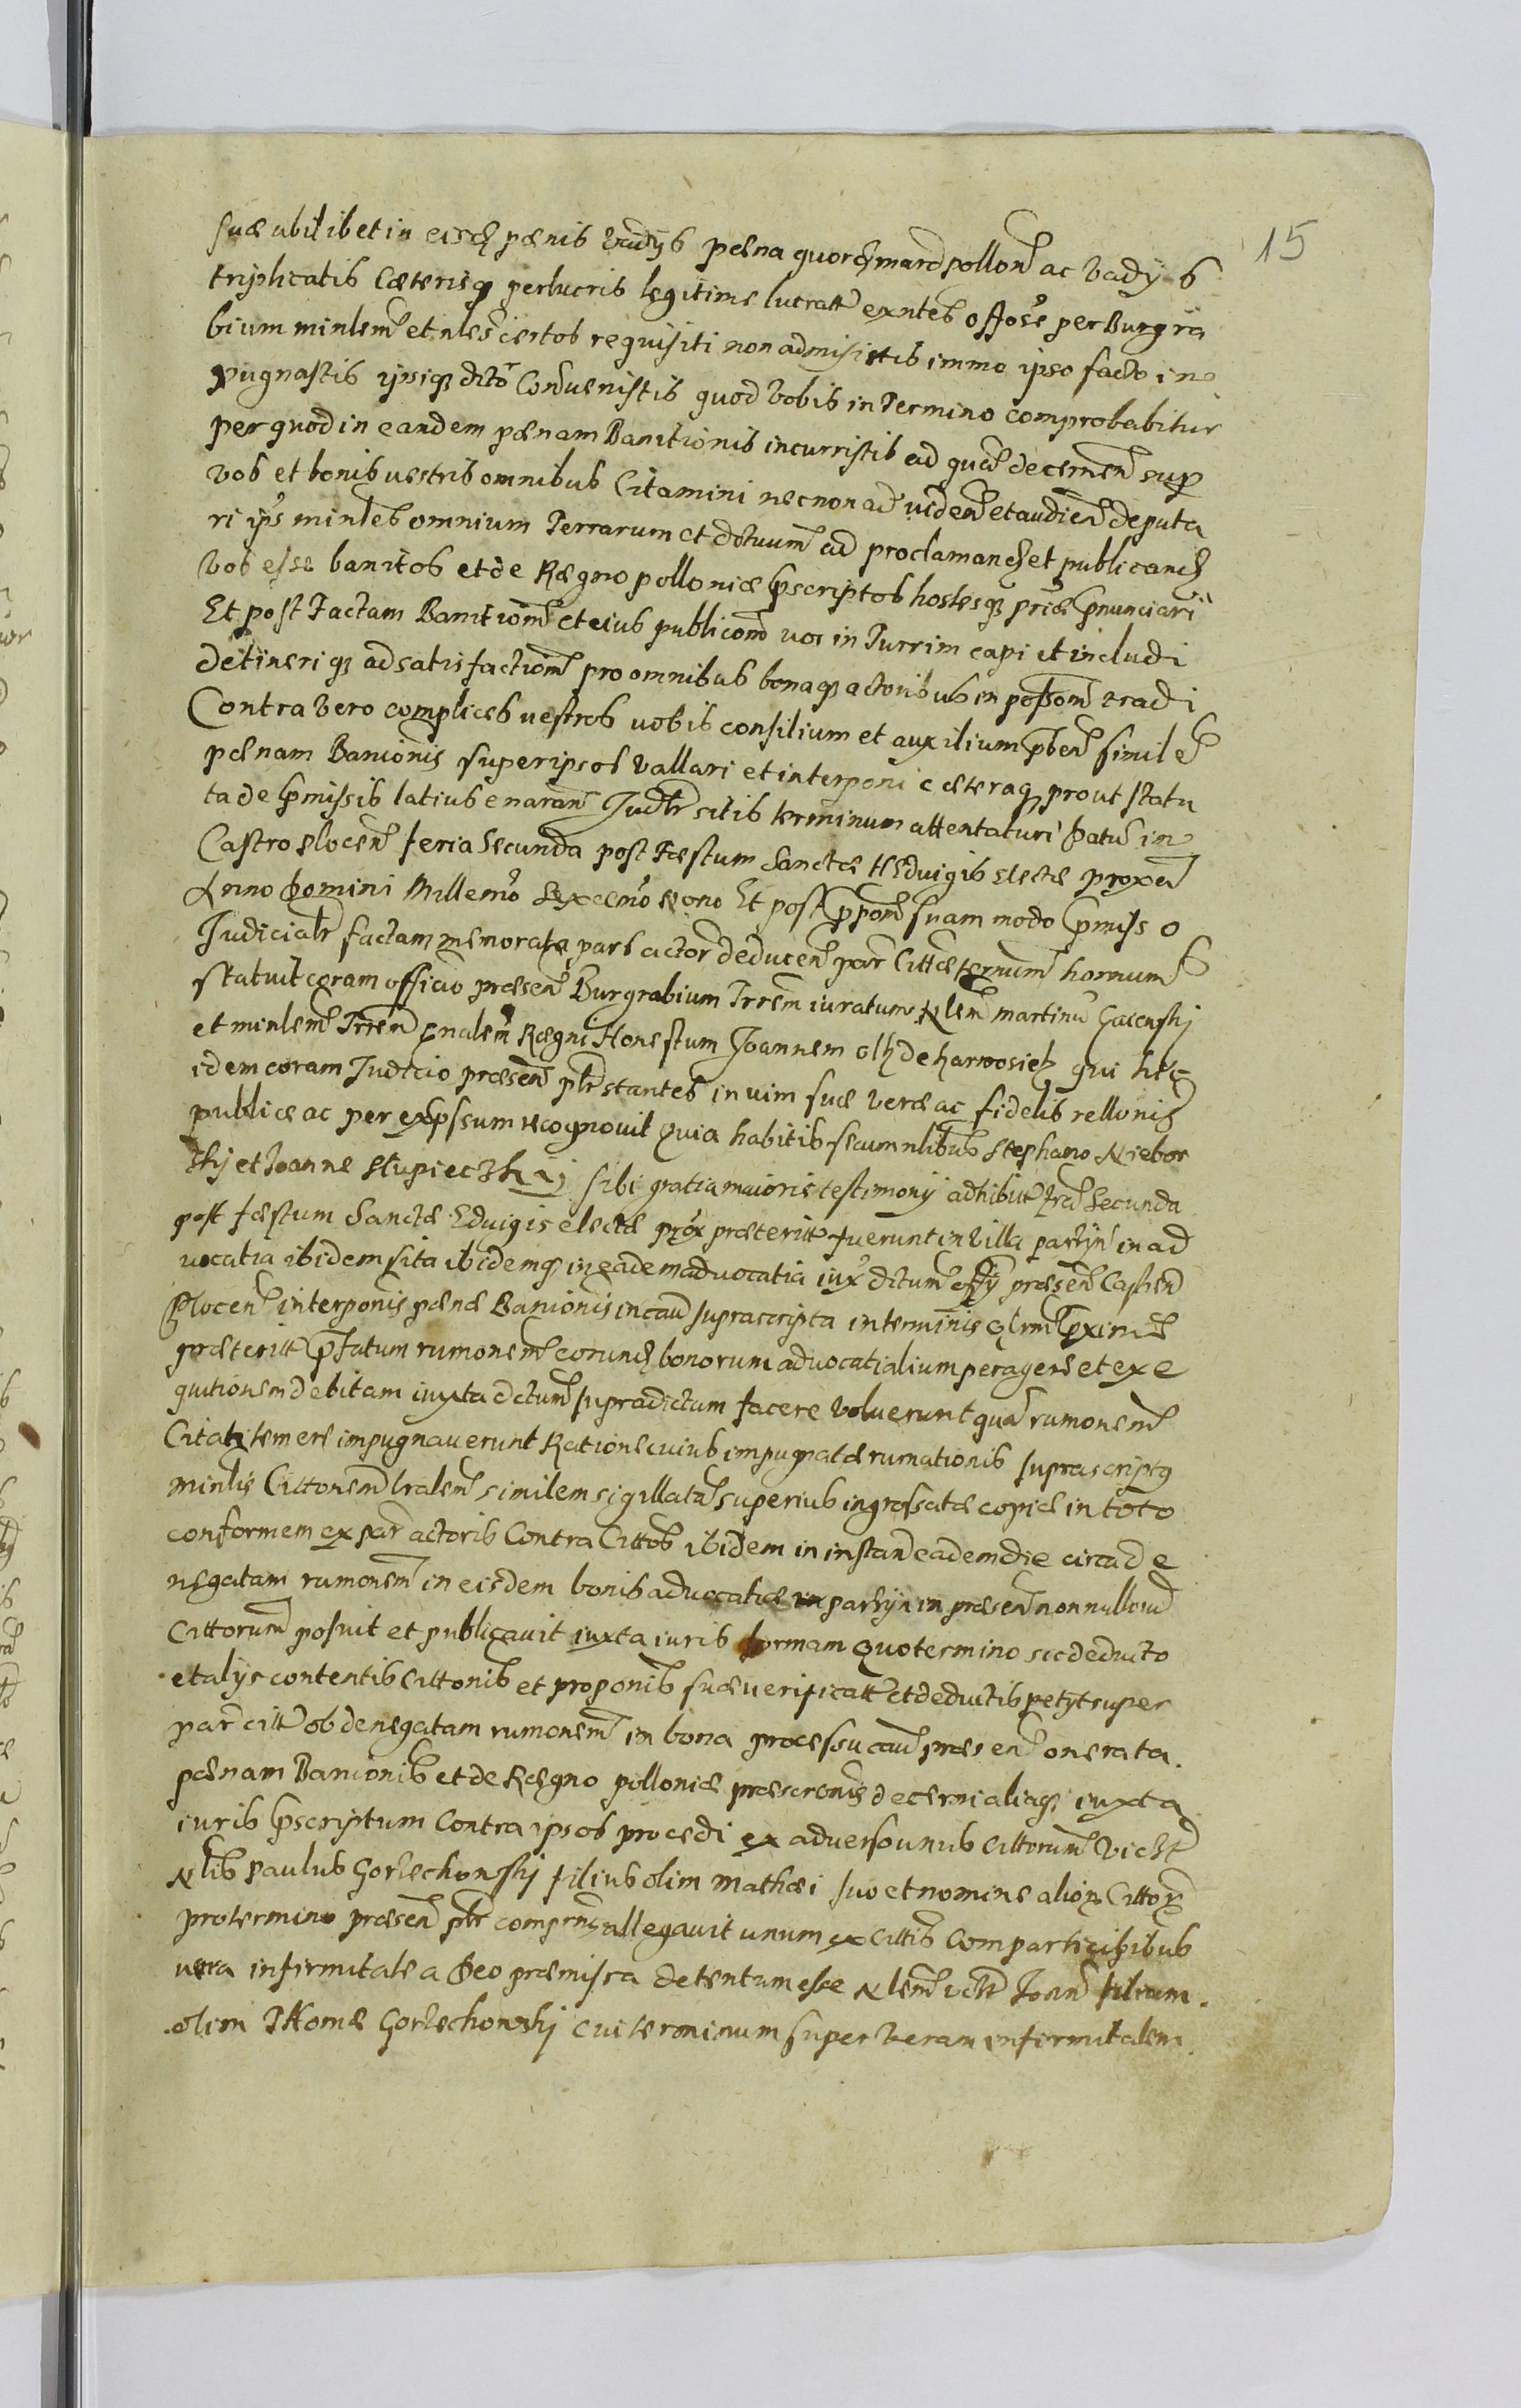 15
suæ ubilibet in eisd pænis vadys pæna quord mard pollon ac vadys
triplicatis Cæterisq perlucris legitime lucratt exntes offose per Burgra
bium minlem et nles certos requisiti non admisistis immo ipso facto im
pugnastis ipsiq dito Convenistis quod vobis in Termino comprobabitur
per quod in eandem pænam Banitionis incurristis ad qua decernen sup
vos et bonis vestris omnibus Citamini necnon ad viden et audien deputa
ri ips minles omnium Terrarum et dctuum ad proclamand et publicand
Vos esse banitos et de Regno polloniæ pscriptos hostesq priæ pnunciari
Et post Factam Banitiom et eius publicom vos in Turrim capi et includi
detineriq ad satisfactiom pro omnibus bonaq actoribus in possom tradi
Contra vero complices vestros vobis consilium et auxilium pben simile
pænam Banionis super ipsos vallari et interponi cæteraq prout statu
ta de pmissis latius enaran Judlr sitis terminum attentaturi Datu in
Castro plocen feria Secunda post Festum Sanctæ Hedvigis Electæ proxa
Anno Domini Millemo Sexcemo Nono Et post ppom suam modo pmisso
Judicialr factam memorata pars actor deducen par Cittæ ternum hornum
statuit coram officio præsen Burgrabium Trrem iuratum Nlem martinu Gacenskj
et minlem Trrem gnalem Regni Honestum Joannem olh de harwosieh qui hic
idem coram Judicio præsen plr stantes in vim suæ veræ ac fidelis rellonis
publice ac per expssum recognovit Quia habitis secum nlibus Stephano Niebor
skj et Joanne Stupieczkij sibi gratia maioris testimony adhibit fra Secunda
post festum Sanctæ Edvigis electæ prox præteritt fuerunt in villa parzyn in ad
vocatia ibidem sita ibidemq in eadem advocatia iux dctum offy præsen Castren
Plocen interponis pænæ Banionis in cau suprascripta in terminis qlrml pxime
præteritt pfatum rumonem eorund bonorum advocatialium peragere et exe
qutionem debitam iuxta dctum supradictum facere voluerunt qua rumonem
Citati temere impugnaverunt Ratione cuius impugnatæ rumationis suprascriptq
minlis Cittonem lralem similem sigillatam superius ingrossatæ copiæ in toto
conformem ex par actoris Contra Cittos ibidem in instan eadem die circa de
negatam rumonem in eisdem bonis advocatiæ in parzyn in præsen nonnulloru
Cittorum posuit et publicavit iuxta iuris formam Quo termino sic deducto
et alys contentis Cittonis et proponis suæ verificatt et deductis petyt super
par citt ob denegatam rumonem in bona processu cau præsen onerata
pænam Banionis et de Regno polloniæ præscronis decerni aliaq iuxta
iuris pscriptum Contra ipsos procedi ex adverso unus Cittorum viclt
Nlis Paulus Gorzechowskj filius olim Mathæi suo et nomine alior Cittor
pro termino præsen plr comprns allegavit unum ex Cittis Comparticipibus
vera infirmitate a Deo præmissa detentum esse Nlem viclt Joan filium
olim Thomæ Gorzechowskj cui terminum super veram infirmitatem